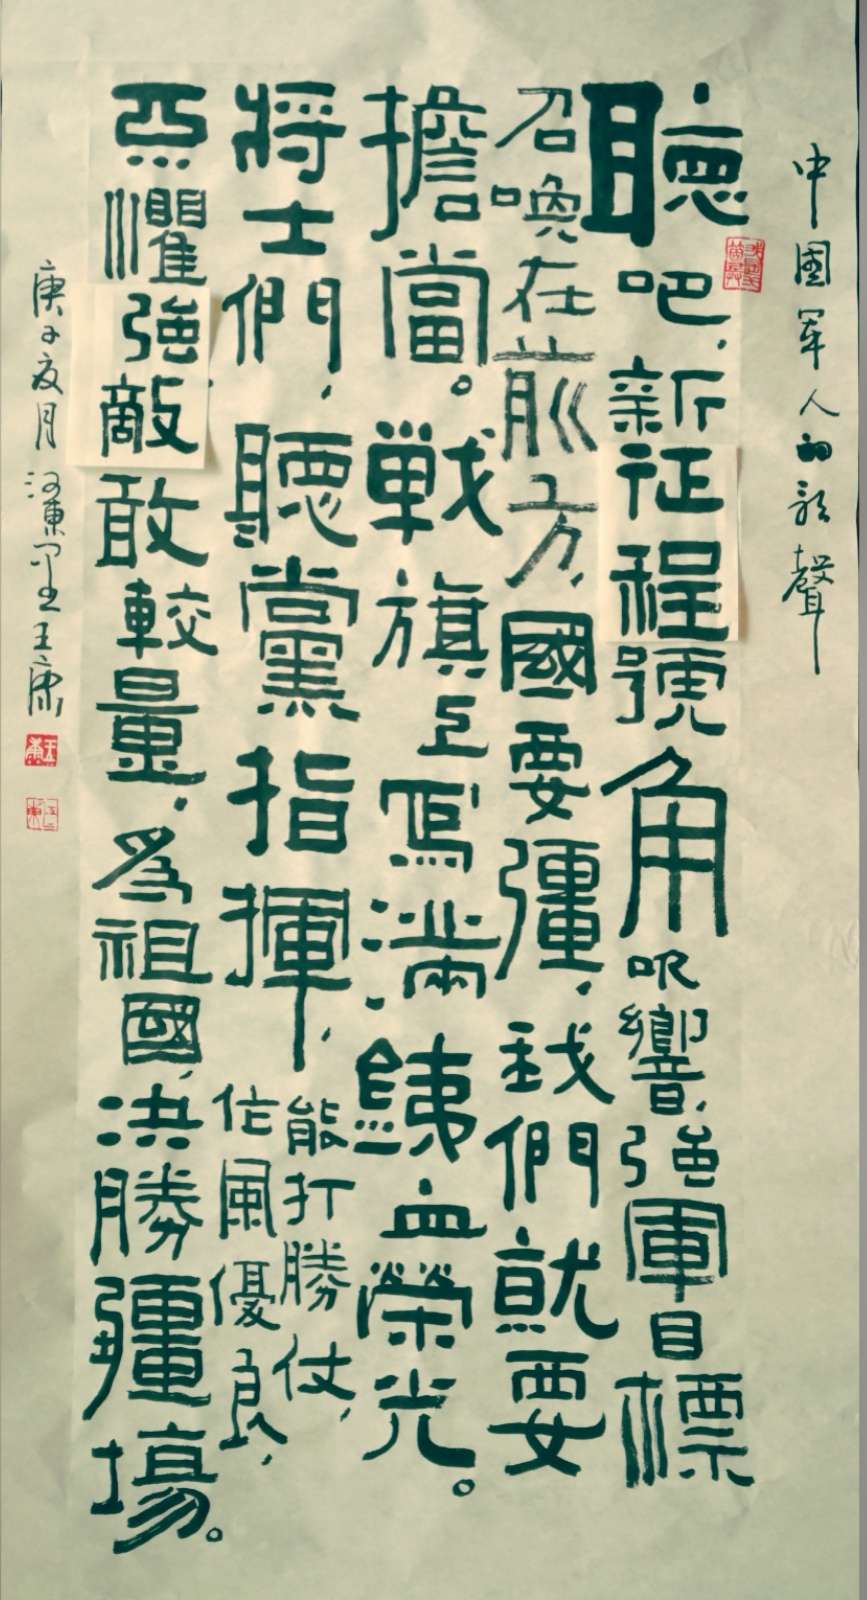 中國軍人的歌聲
聽吧,新征程號角吹響,強軍目標
召喚在前方,國要彊,我們就要
擔當。戦旗上寫滿,銕血榮光。
將士們,聽黨指揮,能打勝仗,
作風優良,
懼強敵敢較量,為祖國,決勝疆場。
庚子夏月 王康
王康